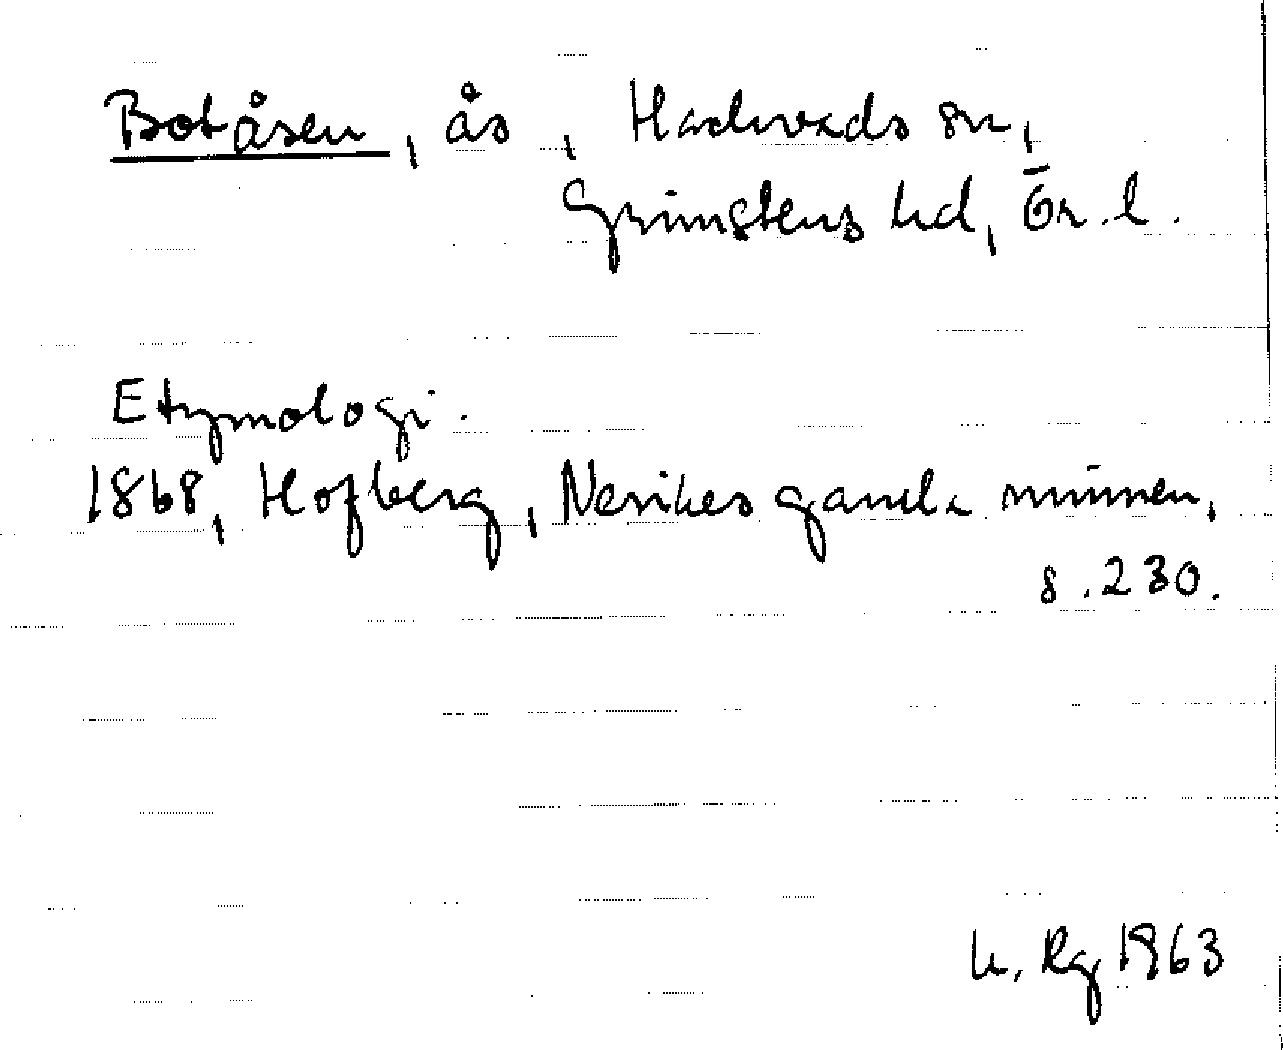 Botåsen, ås, Hardemo sn,
Grimstens hd, Ör. l.
Etymologi.
1868, Hofberg, Nerikes gamla minnen,
s. 230.
Rg 1963